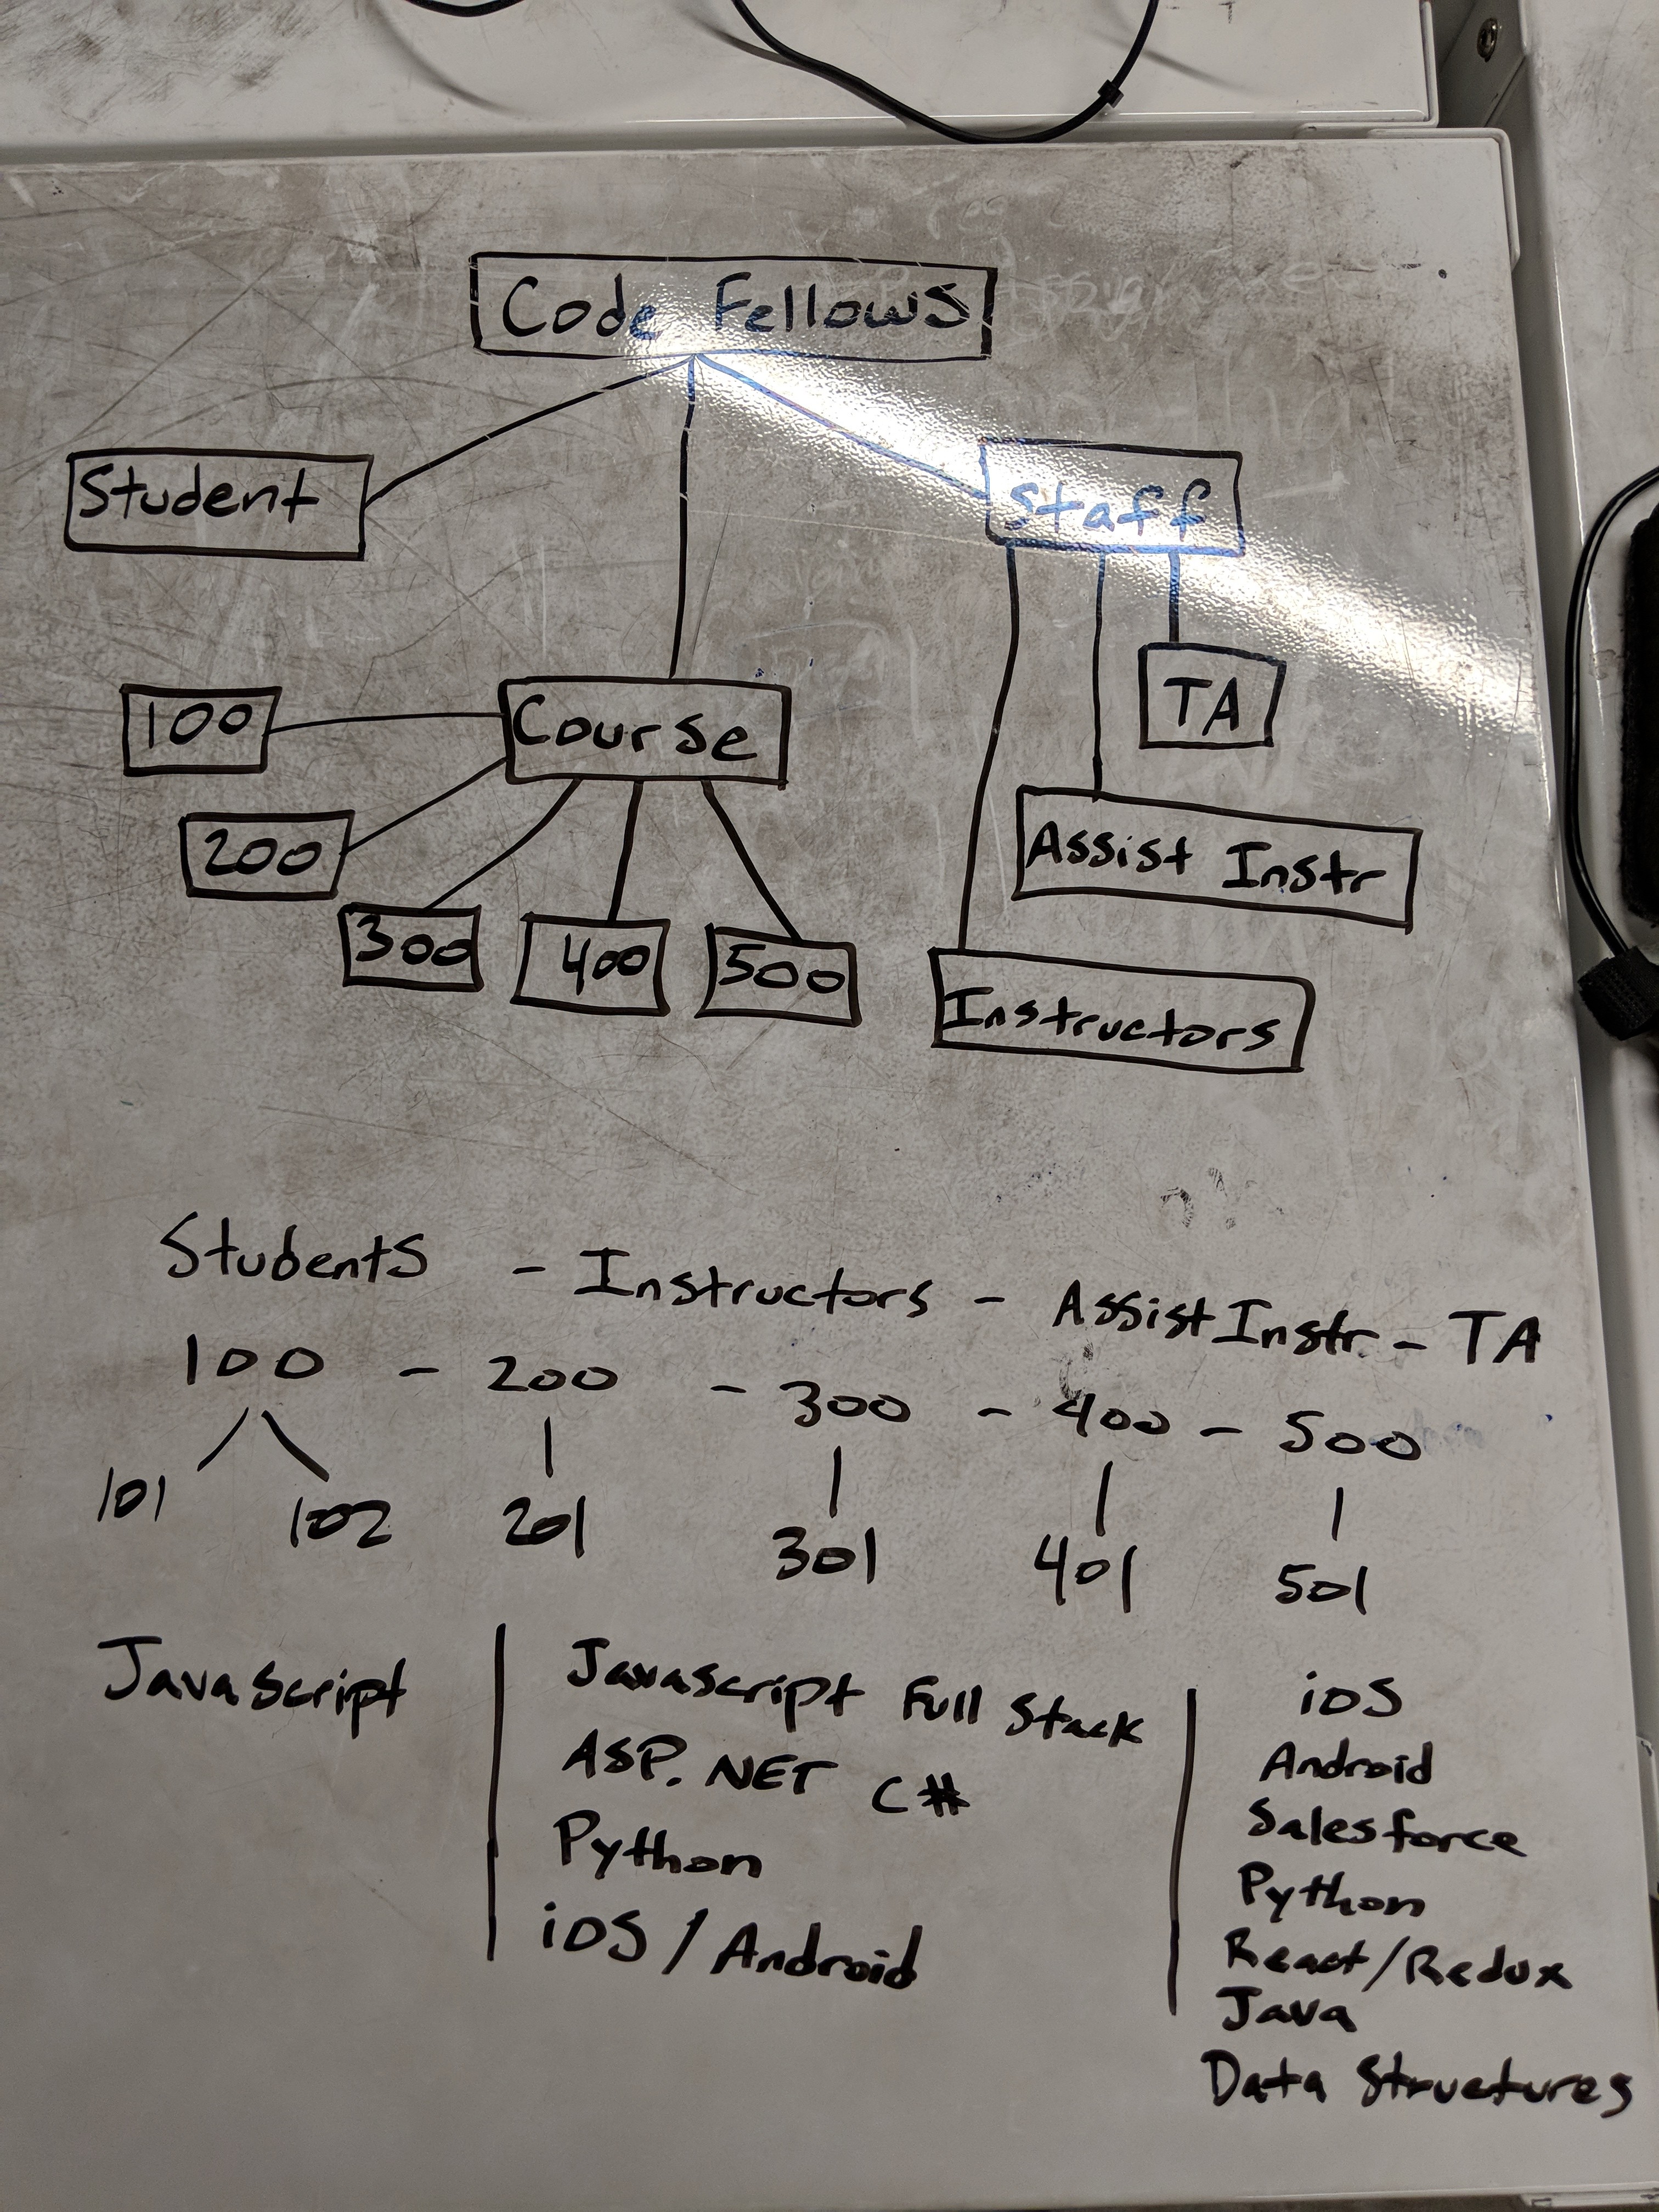 Code Fellows
Student
Staff
TA
100
Course
200
Assist Instr
300
400
500
Instructors
Students - Instructors - Assist Instr - TA
100 - 200 - 300 - 400 - 500
101
102
201
301
401
501
JavaScript
Javascript Full Stack
ASP.NET C#
Python
iOS / Android
iOS
Android
Salesforce
Python
React/Redux
Java
Data Structures